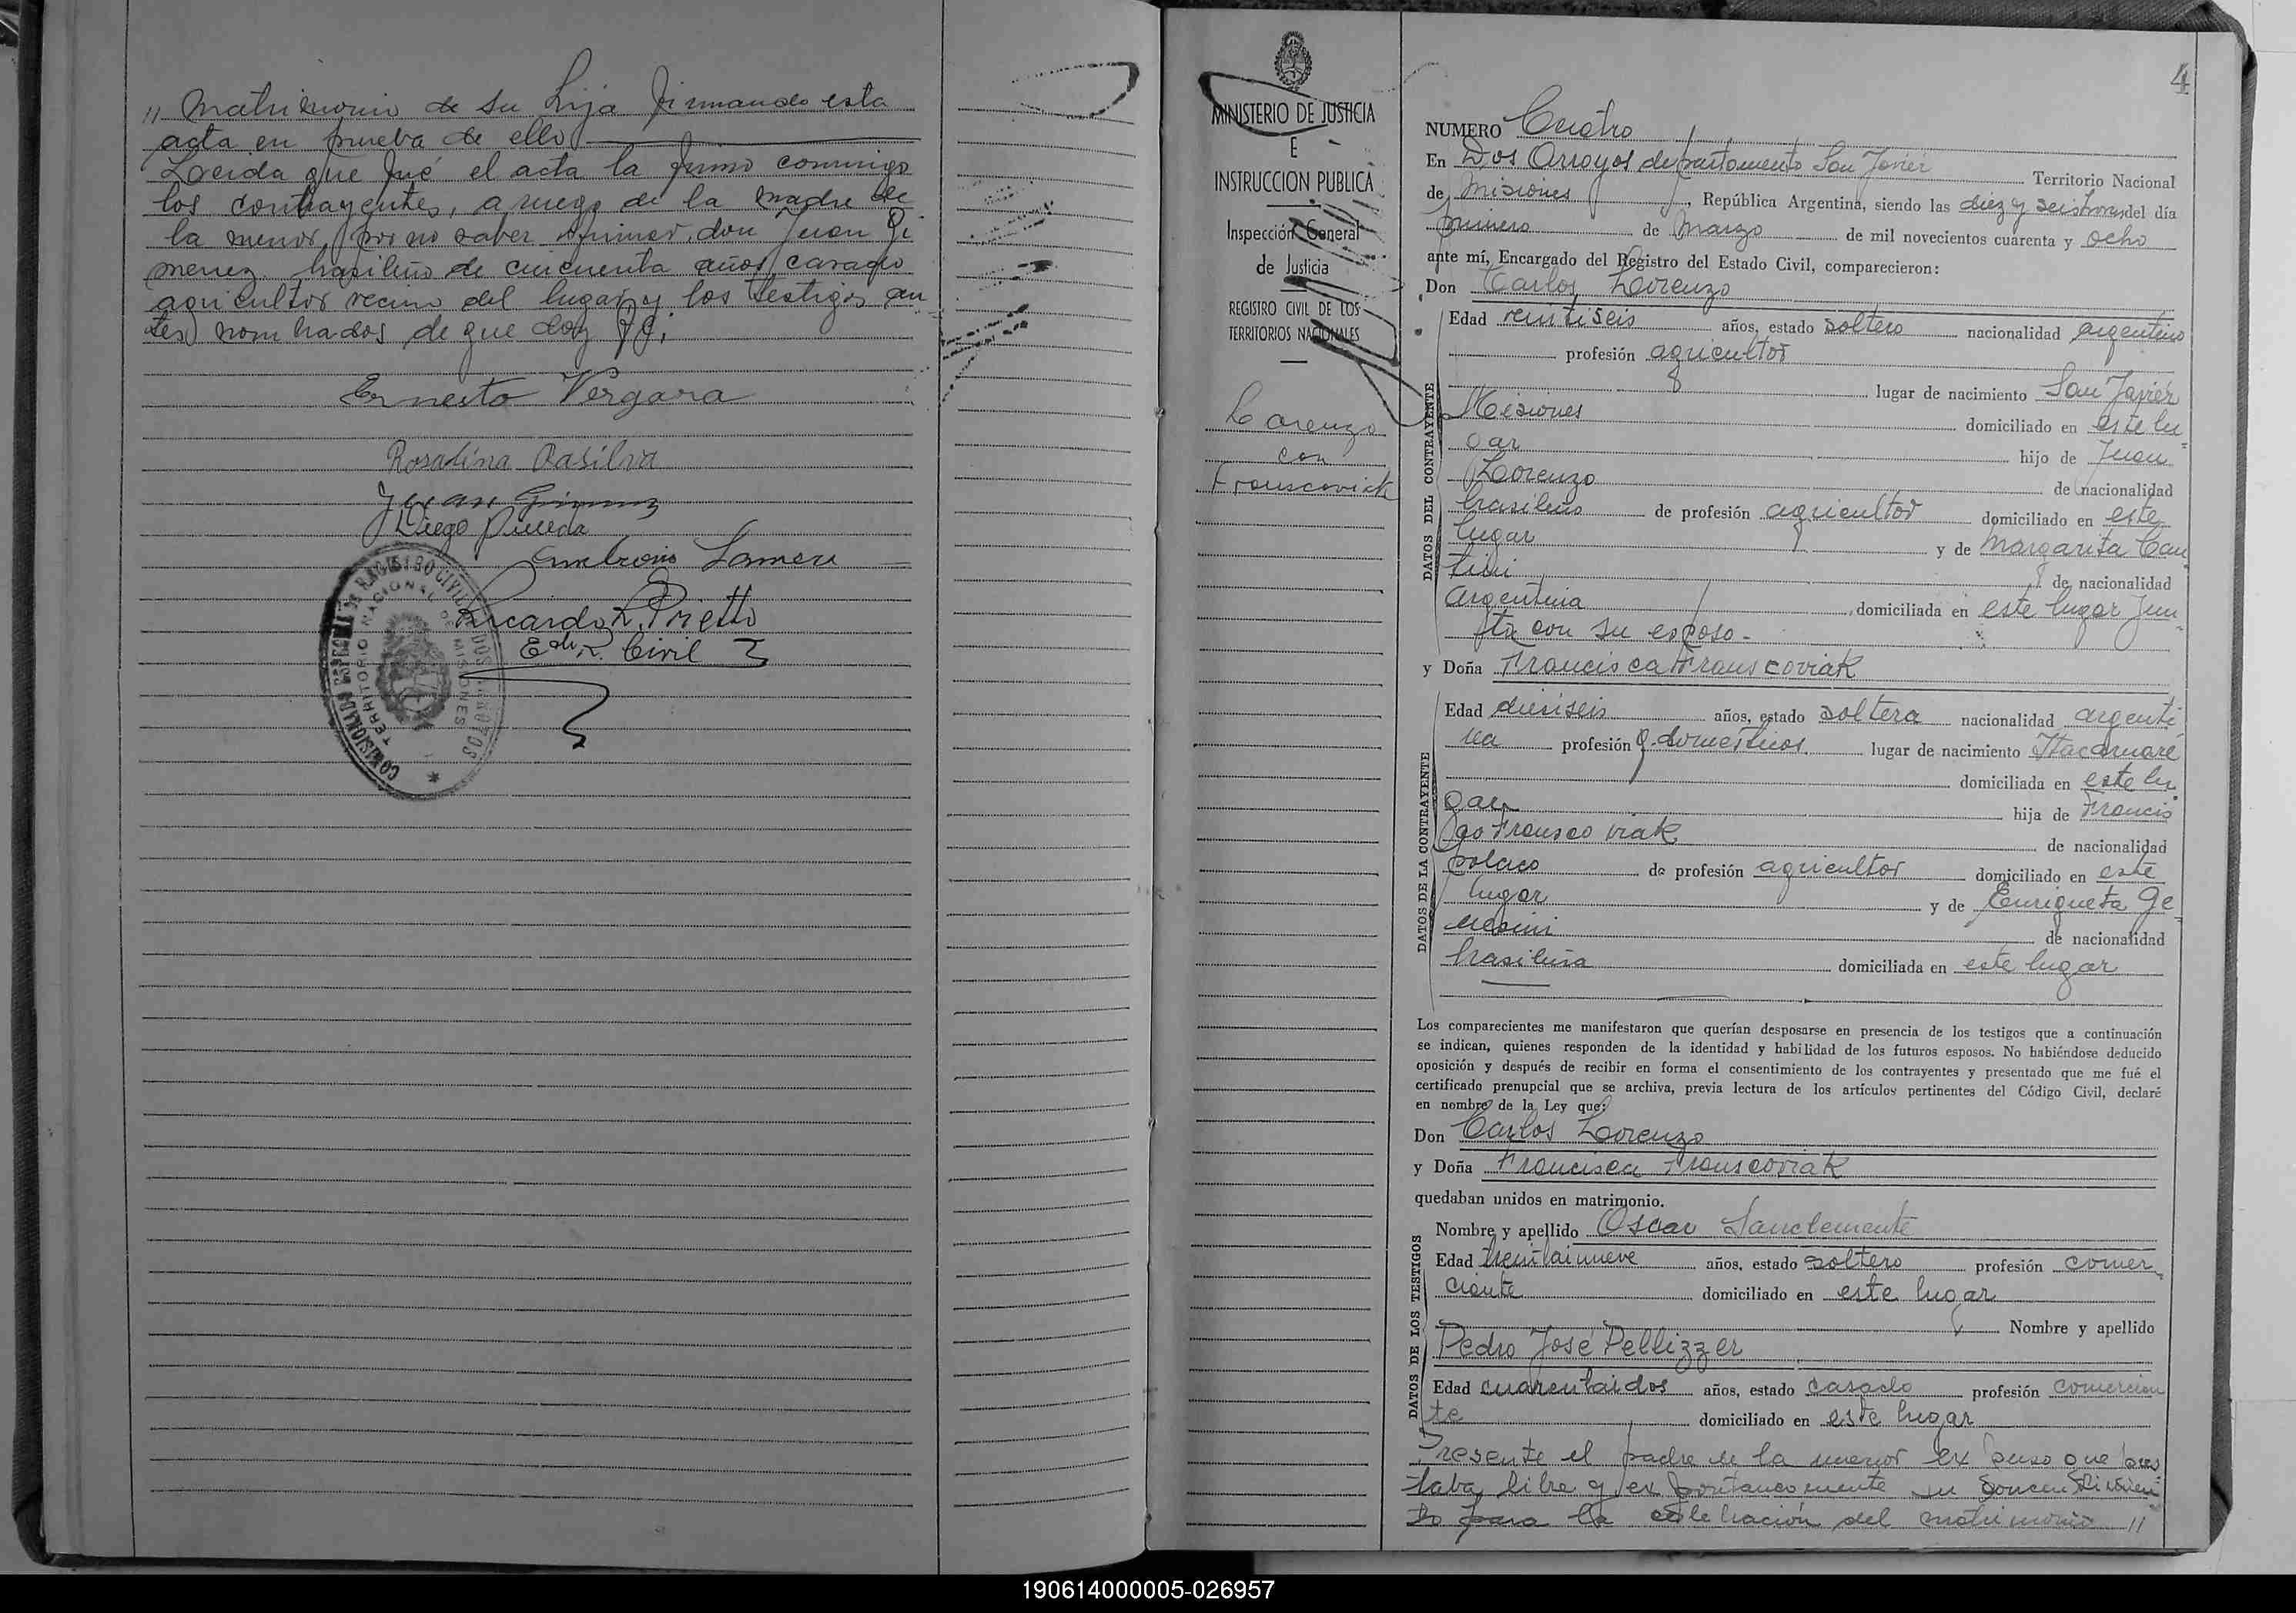 " Matrimonio de su hija firmando esta
acta en prueba de ello
Leida que fué el acta la firmó conmigo
los contrayentes, a ruego de la madre de
la menor, por no saber firmar, don Juan Gi
menez brasileño de cincuenta años, casado
agricultor vecino del lugar y los testigos an
tes nombrados de que doy fé;
Ernesto Vergara
Rosalina Dasilva
Juan Gimenez
Diego Pineda
Ambrosio
Ricardo R. Prietto
Edo. R. Civil
TERRITORIO NACIONAL DE MISIONES
4
MINISTERIO DE JUSTICIA
E
INSTRUCCION PUBLICA
Inspección General
de Justicia
REGISTRO CIVIL DE LOS
TERRITORIOS NACIONALES
Lorenzo
con
Franscoviak
NUMERO Cuatro
En Dos Arroyos departamento San Javier Territorio Nacional
de Misiones, República Argentina, siendo las diez y seis horas del día
primero de Marzo de mil novecientos cuarenta y ocho
ante mí, Encargado del Registro del Estado Civil, comparecieron:
Don Carlos Lorenzo
DATOS DEL CONTRAYENTE
Edad veintiseis años, estado soltero nacionalidad argentino
profesión agricultor
lugar de nacimiento San Javier
Misiones domiciliado en este lu
gar hijo de Juan
Lorenzo de nacionalidad
brasileño de profesión agricultor domiciliado en este
lugar y de Margarita Can
tini de nacionalidad
argentina domiciliada en este lugar jun
ta con su esposo-
y Doña Francisca Franscoviak
DATOS DE LA CONTRAYENTE
Edad dieciseis años, estado soltera nacionalidad argenti
na profesión q. domesticos lugar de nacimiento Itacaruaré
domiciliada en este lu
gar hija de Francis
co Franscoviak de nacionalidad
polaco de profesión agricultor domiciliado en este
lugar y de Enriqueta Ge
de nacionalidad
brasileña domiciliada en este lugar
Los comparecientes me manifestaron que querían desposarse en presencia de los testigos que a continuación
se indican, quienes responden de la identidad y habilidad de los futuros esposos. No habiéndose deducido
oposición y después de recibir en forma el consentimiento de los contrayentes y presentado que me fué el
certificado prenupcial que se archiva, previa lectura de los artículos pertinentes del Código Civil, declaré
en nombre de la Ley que:
Don Carlos Lorenzo
y Doña Francisca Franscoviak
quedaban unidos en matrimonio.
DATOS DE LOS TESTIGOS
Nombre y apellido Oscar Sanclemente
Edad treintainueve años, estado soltero profesión comer
ciante domiciliado en este lugar
Nombre y apellido
Pedro José Pellizzer
Edad cuarentaidos años, estado casado profesión comercian
te domiciliado en este lugar
Presente el padre de la menor expuso que pres
taba libre y expontaneamente su concentimien
to para la celebración del matrimonio "
190614000005-026957